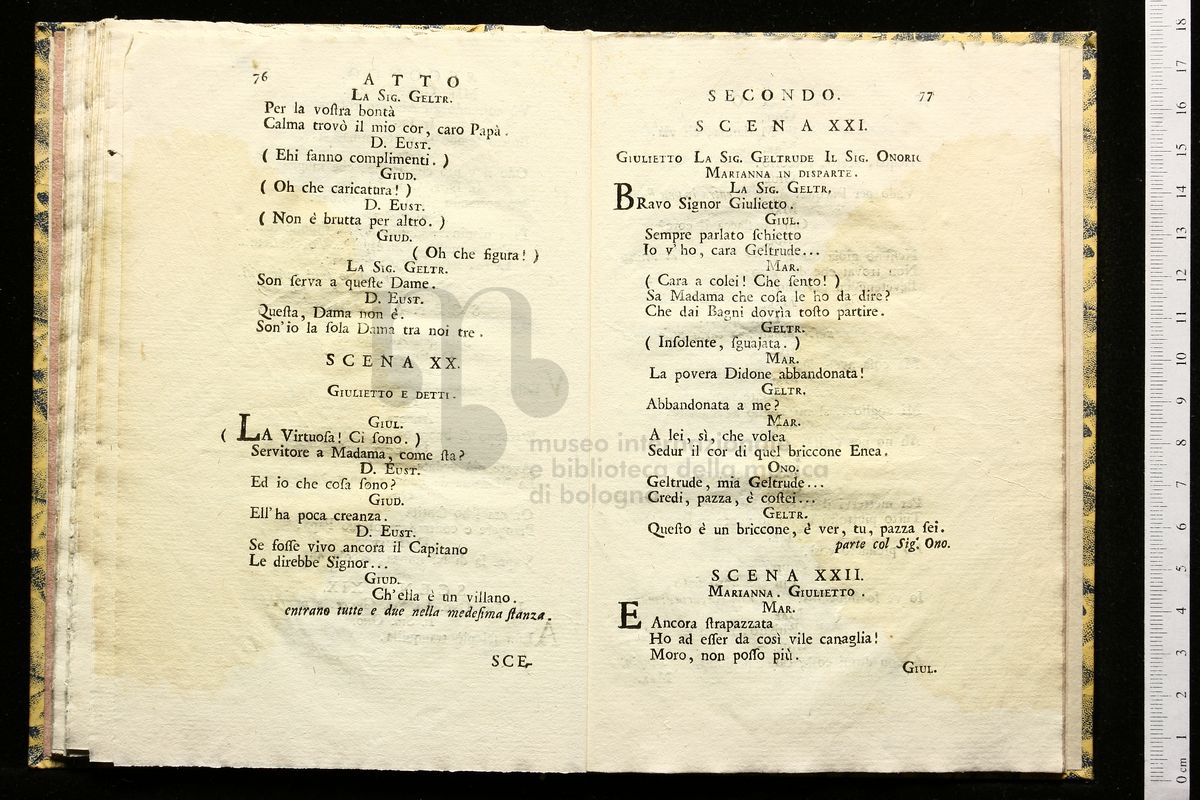 76 ATTO
La Sig. Geltr.
Per la voſtra bontà
Calma trovò il mio cor, caro Papà.
D. Eust.
( Ehi fanno complimenti. )
Giud.
( Oh che caricatura! )
D. Eust.
( Non è brutta per altro. )
Giud.
( Oh che figura! )
La Sig. Geltr.
Son ſerva a queſte Dame.
D. Eust.
Queſta, Dama non è.
Son'io la ſola Dama tra noi tre.
SCENA XX.
Giulietto e detti.
Giul.
( LA Virtuoſa! Ci ſono. )
Servitore a Madama, come ſta?
D. Eust.
Ed io che coſa ſono?
Giud.
Ell'ha poca creanza.
D. Eust.
Se foſſe vivo ancora il Capitano
Le direbbe Signor...
Giud.
Ch'ella è un villano.
entrano tutte e due nella medeſima ſtanza.
SCE-
SECONDO. 77
SCENA XXI.
Giulietto La Sig. Geltrude Il Sig. Onoric
Marianna in disparte.
La Sig. Geltr,
BRavo Signor Giulietto.
Giul.
Sempre parlato ſchietto
Io v'ho, cara Geltrude...
Mar.
( Cara a colei! Che ſento! )
Sa Madama che coſa le ho da dire?
Che dai Bagni dovrìa toſto partire.
Geltr.
( Inſolente, ſguajata. )
Mar.
La povera Didone abbandonata!
Geltr.
Abbandonata a me?
Mar.
A lei, sì, che volea
Sedur il cor di quel briccone Enea.
Ono.
Geltrude, mia Geltrude...
Credi, pazza, è coſtei...
Geltr.
Queſto è un briccone, è ver, tu, pazza ſei.
parte col Sig. Ono.
SCENA XXII.
Marianna. Giulietto.
Mar.
E Ancora ſtrapazzata
Ho ad eſſer da così vile canaglia!
Moro, non poſſo più.
Giul.
museo internazionale
e biblioteca della musica
di bologna
0 cm 1 2 3 4 5 6 7 8 9 10 11 12 13 14 15 16 17 18